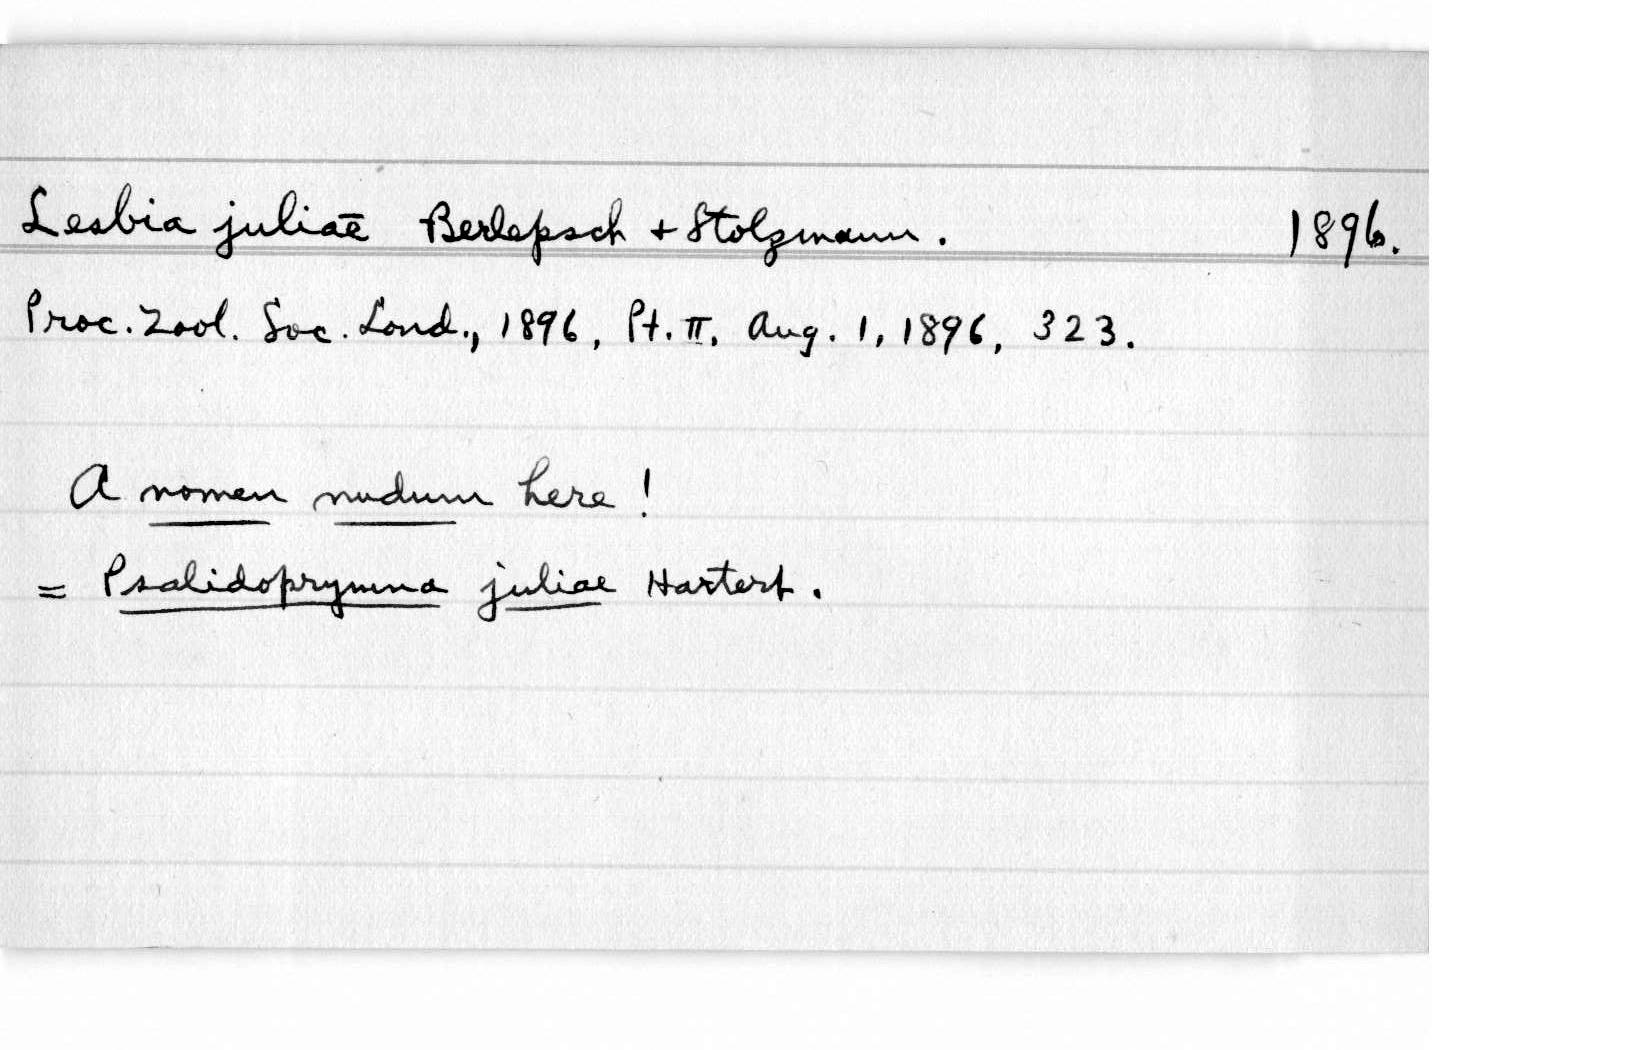 Lesbia juliae Berlepsch + Stolzmann. 1896.
Proc. Zool. Soc. Lond., 1896, Pt. II, Aug. 1, 1896, 323.
A nomen nudum here!
= Psalidoprymna juliae Hartert.